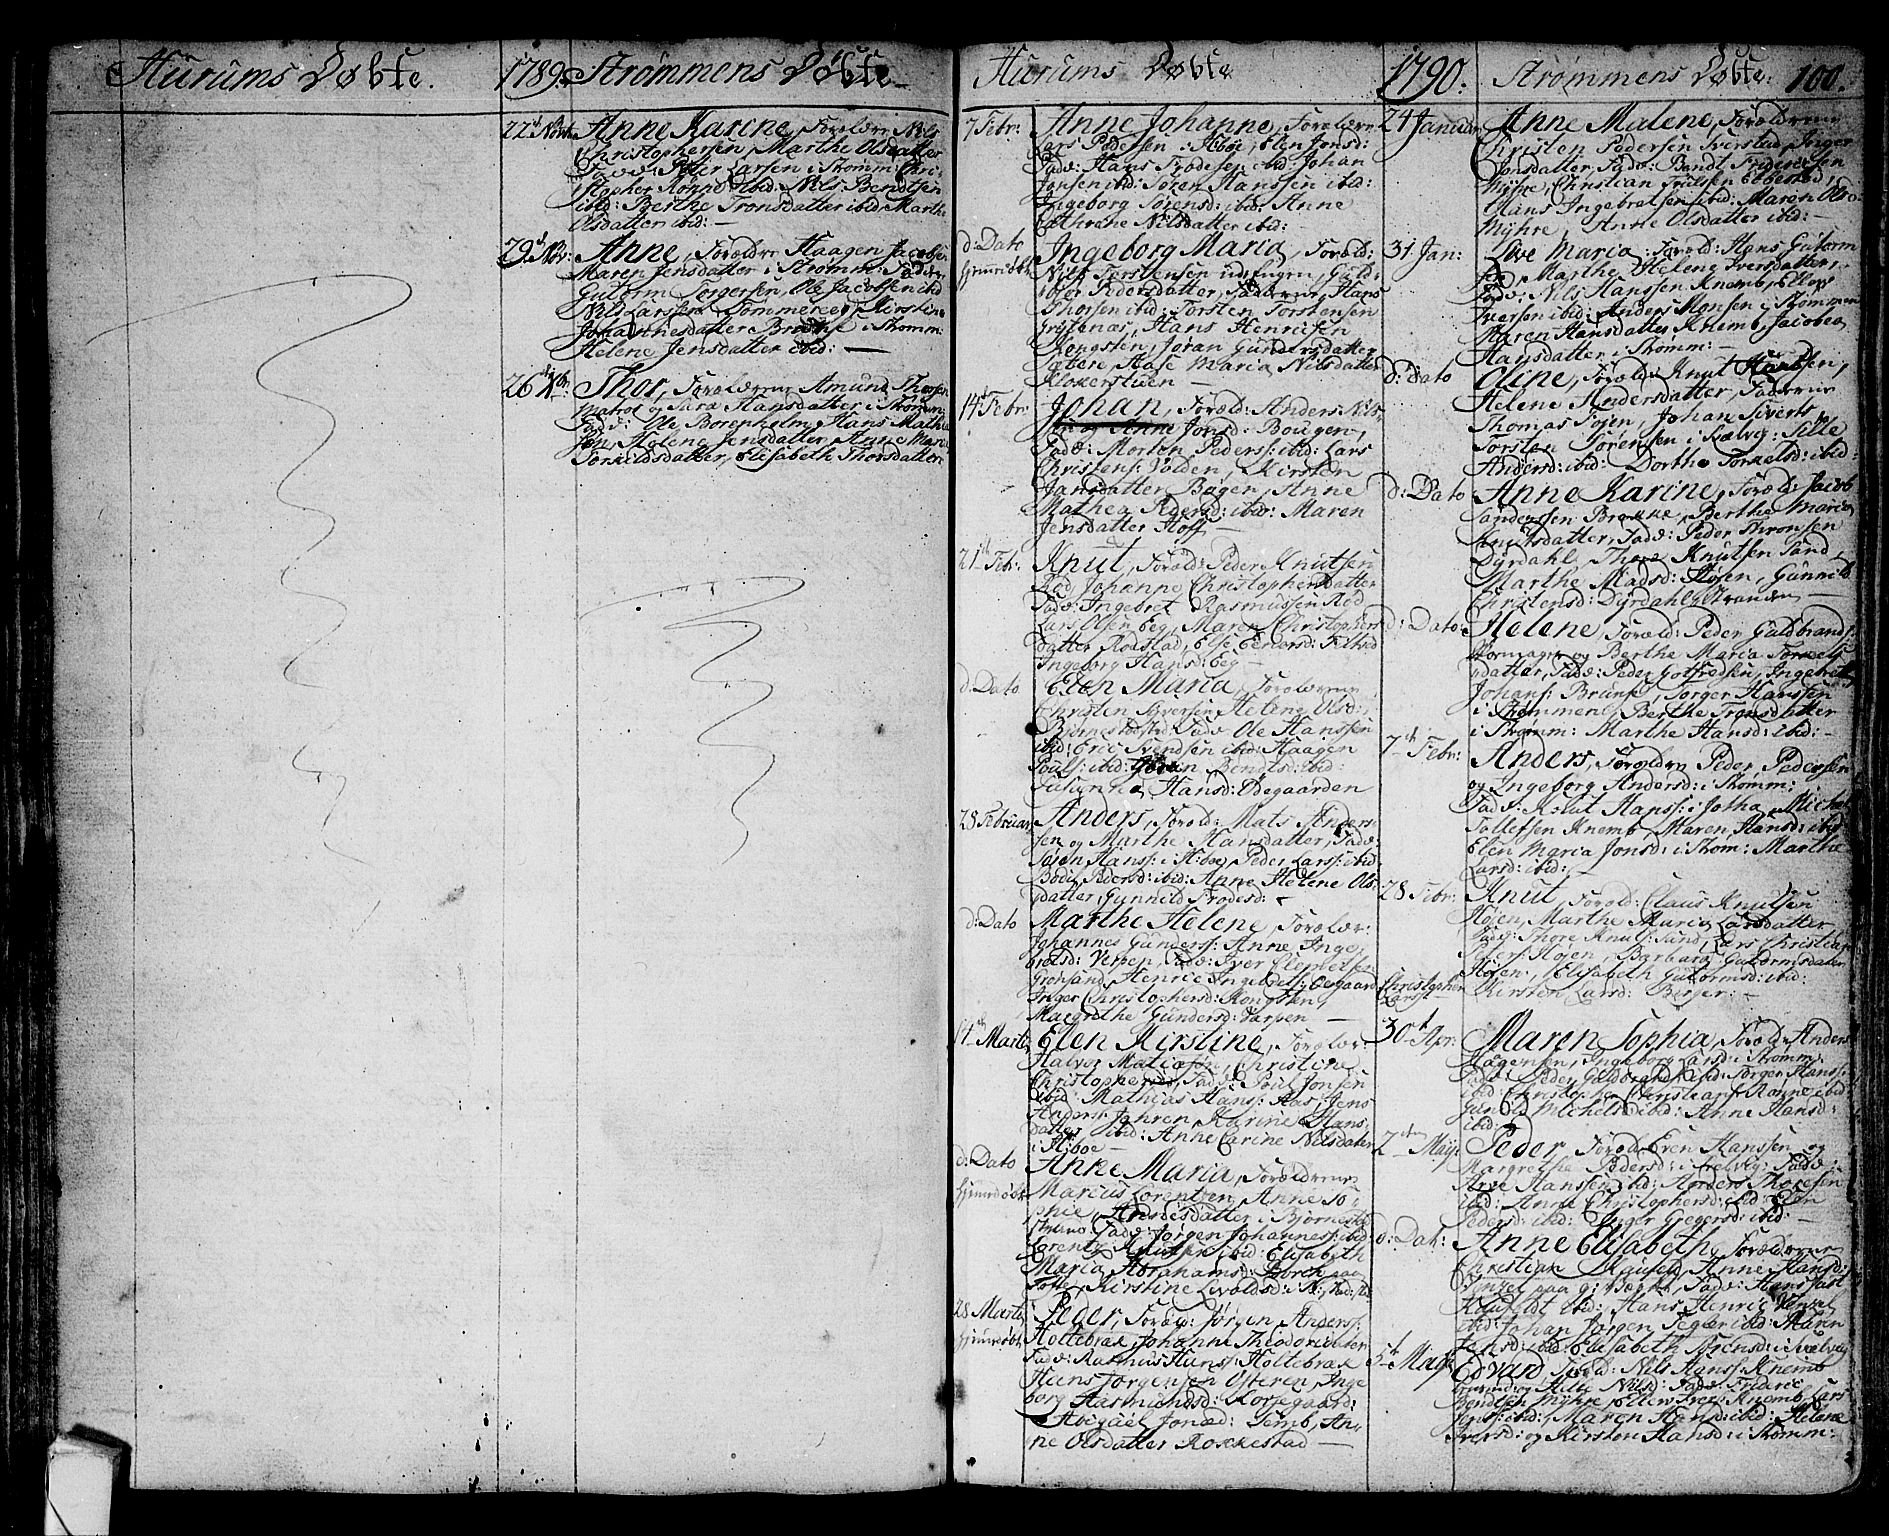 Hurums Døbte.
1789.
Strømmens Døbte
22d Novbr:
Anne Karine, Forældre Nils
Christophersen, Marthe Olsdatter
Fadd: Peter Larsen i Strømm: Chri-
stopher Rønne ibid: Nils Bendtsen
ibid: Berthe Tronsdatter ibid, Marthe
Olsdatter ibid: —
29d Nov:
Anne, Forældre Haagen Jacobsen
Maren Jensdatter i Strømm: Fadderne
Gutorm Torgersen, Ole Jacobsen ibid
Nils Larsen Tømmeraas, Kirstine
Johannesdatter i Strømm:
Helene Jensdatter ibid: —
26 Xbr:
Thor, Forældrene Amund Thorsen
Matros og Sara Hansdatter i Strømm:
Fadd: Ole Borepholm, Hans Mathie
sen, Helene Jensdatter, Anne Marie
Torkildsdatter, Elisabeth Thorsdatter
Hurums Døbte
1790.
Strømmens Døbte:
100.
7 Febr:
Anne Johanne, Forældre
Lars Pedersen i H:boe, Elen Jonsd:
Fadd: Hans Frodesen ibid Johan
Jonsen ibid: Søren Hanssen ibid:
Ingeborg Sørensd: ibid: Anne
Cathrine Nilsdatter ibid: —
d: Dato
Hjemmedøbt
Ingeborg Maria, Foræld:
Nils Torstensen Guld-
Pedersdatter, Fadderne, Hans
Thorsen ibid: Torsten Torstensen
Hans Henrichsen
Kongsten, Joran Gundersdatter
Sætre, Aase Maria Nilsdatter
Klokerstuen —
14d Febr:
Johan, Foræld: Anders Nils-
sen og Anne Jonsd: Bougen,
Fadd: Morten Peders: ibid: Lars
Christens: Volden, Kirsten
Jansdatter Bogen, Anne
Mathea Pedersd: ibid: Maren
Jensdatter Hoff —
21d Febr:
Knut, Foræld: Peder Knutsen
Rød Johanne Christophersdatter
Fadd: Ingebret Rasmussen Rød
Lars Olsen Eeg, Maren Christophers
datter Rodstad, Else Einersd:
Ingeborg Hansd: Eeg —
d: Dato
Elen Maria, Forældrene
Christen Iversen, Helene Olsd:
Fadd: Ole Hanssen
ibid: Eric Svendsen ibid: Haagen
Pouls: ibid: Bendtsd: ibid:
Susanna Hansd: Ødegaarden
28 Februar
Anders, Foræld: Mats Anders-
sen og Marthe Hansdatter, Fadd:
Søren Hanss: i H:boe, Peder Larss: ibid
Bodil Pedersd: ibid: Anne Helene Ols-
datter, Gunnild Frodesd: —
d: Dato
Marthe Helene, Foræld:
Johannes Gunders: Anne Inge-
bretsd: Verpen, Fadd: Iver
Grønsand, Henric Ingebretss: Ødegaard
Inger Christophersd: Kongsten
Margrethe Gundersd: Varpen —
14d Martii
Elen Kirstine, Foræld:
Halvor Christina
Christophersd, Fadd: Poul Jonsen
ibid: Mathias Hans: Aas, Jens
Anders: Jahren Karine Hans
datter ibid: Anne Carine Nilsdatter
i H:boe —
d: Dato
Hjemmedøbt
Anne Maria, Forældrene
Marcus Lorentzen, Anne So-
phie Andersdatter i Bjørne
Fadd: Jørgen Johanness: ibid
Lorentz Knutsen ibid: Elisabeth
Maria Abrahams: Borch paa
Tofte, Kirstine
28 Martii
Hjemmedøbt
Peder, Foræld: Jørgen Anders:
Holtebrak, Johanne Theodorsdatter
Fadd: Rasmus Hanss: Holtebrak
Hans Jørgensen Østeren, Inge-
borg Aasmundsd: Korsegaard:
Abigael Jonæd: Semb, An-
ne Olsdatter Rokkestad —
24 Januar
Anne Malene, Forældrene
Christen Pedersen Tverstad, Inger
Jonsdatter, Fadd: Bendt Fredericsen
Myhre, Christian Trulsen Ebbestad,
Hans Ingebretsen ibid: Maren Ols-
Myhre, Anne Olsdatter ibid: —
31 Jan:
Love Maria, Foræld: Hans Gutorm
sen, Marthe Helene Iversdatter,
Fadd: Nils Hanssen Knemb, Ellev
Iversen ibid: Anders Monsen i Strømmen
Maren Hansdatter Knemb, Jacobea
Hansdatter i Strømm: —
d: Dato
Oline, Foræld: Knut Hanssen,
Helene Andersdatter, Fadderne
Thomas Tojen, Johan Siverts
Torsten Sørensen i Sælvig: Sille
Andersd: ibid: Dorthe Torkelsd: ibid:
d: Dato
Anne Karine, Foræld: Jacob
Anderssen Brække, Berthe Maria
Knutsdatter, Fadd: Peder Thronsen
Dyrdahl, Thore Knutsen Sand,
Marthe Madsd: Høien, Gunnild
Christensd: Dyrdahl, Stranden —
d: Dato:
Helene, Foræld: Peder Guldbrands:
og Berthe Maria Torkels-
datter, Fadd: Peder Gotfredsen, Ingebret
Johans: Brunse, Torger Hanssen
i Strømmen, Berthe Tronsdatter
i Strømm: Marthe Hansd: ibid: —
7d Febr:
Anders, Forældre Peder Pedersen
og Ingeborg Andersd: i Strømm:
Fadd: Hanss: i Joha, Michel
Tollefsen Knemb, Maren Hansd: ibid
Elen Maria Jonsd: i Strøm: Marthe
Larsd: ibid: —
28 Febr:
Knut, Foræld: Claus Knutsen
Høien, Marthe Maria Larsdatter,
Fadd: Thore Knuts: Sand, Lars Christian
Høien, Barbara Gutormsdatter
Høien, Elisabeth Gutormsd: ibid:
Christopher
Larss:
Kirsten Larsd: Berger: —
30d Apr:
Maren Sophia, Foræld: Anders
Haagensen, Ingeborg Larsd: i Strømm:
Fadd: Peder Guldbrands: ibid: Jørgen Hans:
ibid: Christopher Christians: Rønne ibid:
Gunild Michelsd: ibid: Anne Hansd:
ibid: —
2den Maij:
Peder, Foræld: Even Hanssen og
Margrethe Pedersd: i Selvig, Fadd:
Arve Hanssen ibid: Anders Thoresen
ibid: Anne Christophersd: ibid: Elen
Pedersd: ibid: Inger Gregersd: ibid: —
d: Dat:
Anne Elisabeth, Forældrene
Christian Anne Hansd:
paa Fadd: Hans
ibid: Hans Henric Venzel
ibid: Johan Jørgen ibid: Maren
Jensd: ibid: Elisabeth Sørensd: i Sælvig
5d Maij
Edvard Foræld: Nils Hanss: Knemb
og Helle Nilsd: Fadd: Frideric
Bendtsen Myhre, Ellew Ivers: Knemb, Lars
Jenss: ibid: Maren Hansd: ibid: Helene
Iversd: og Kirsten Hansd: i Strømm: